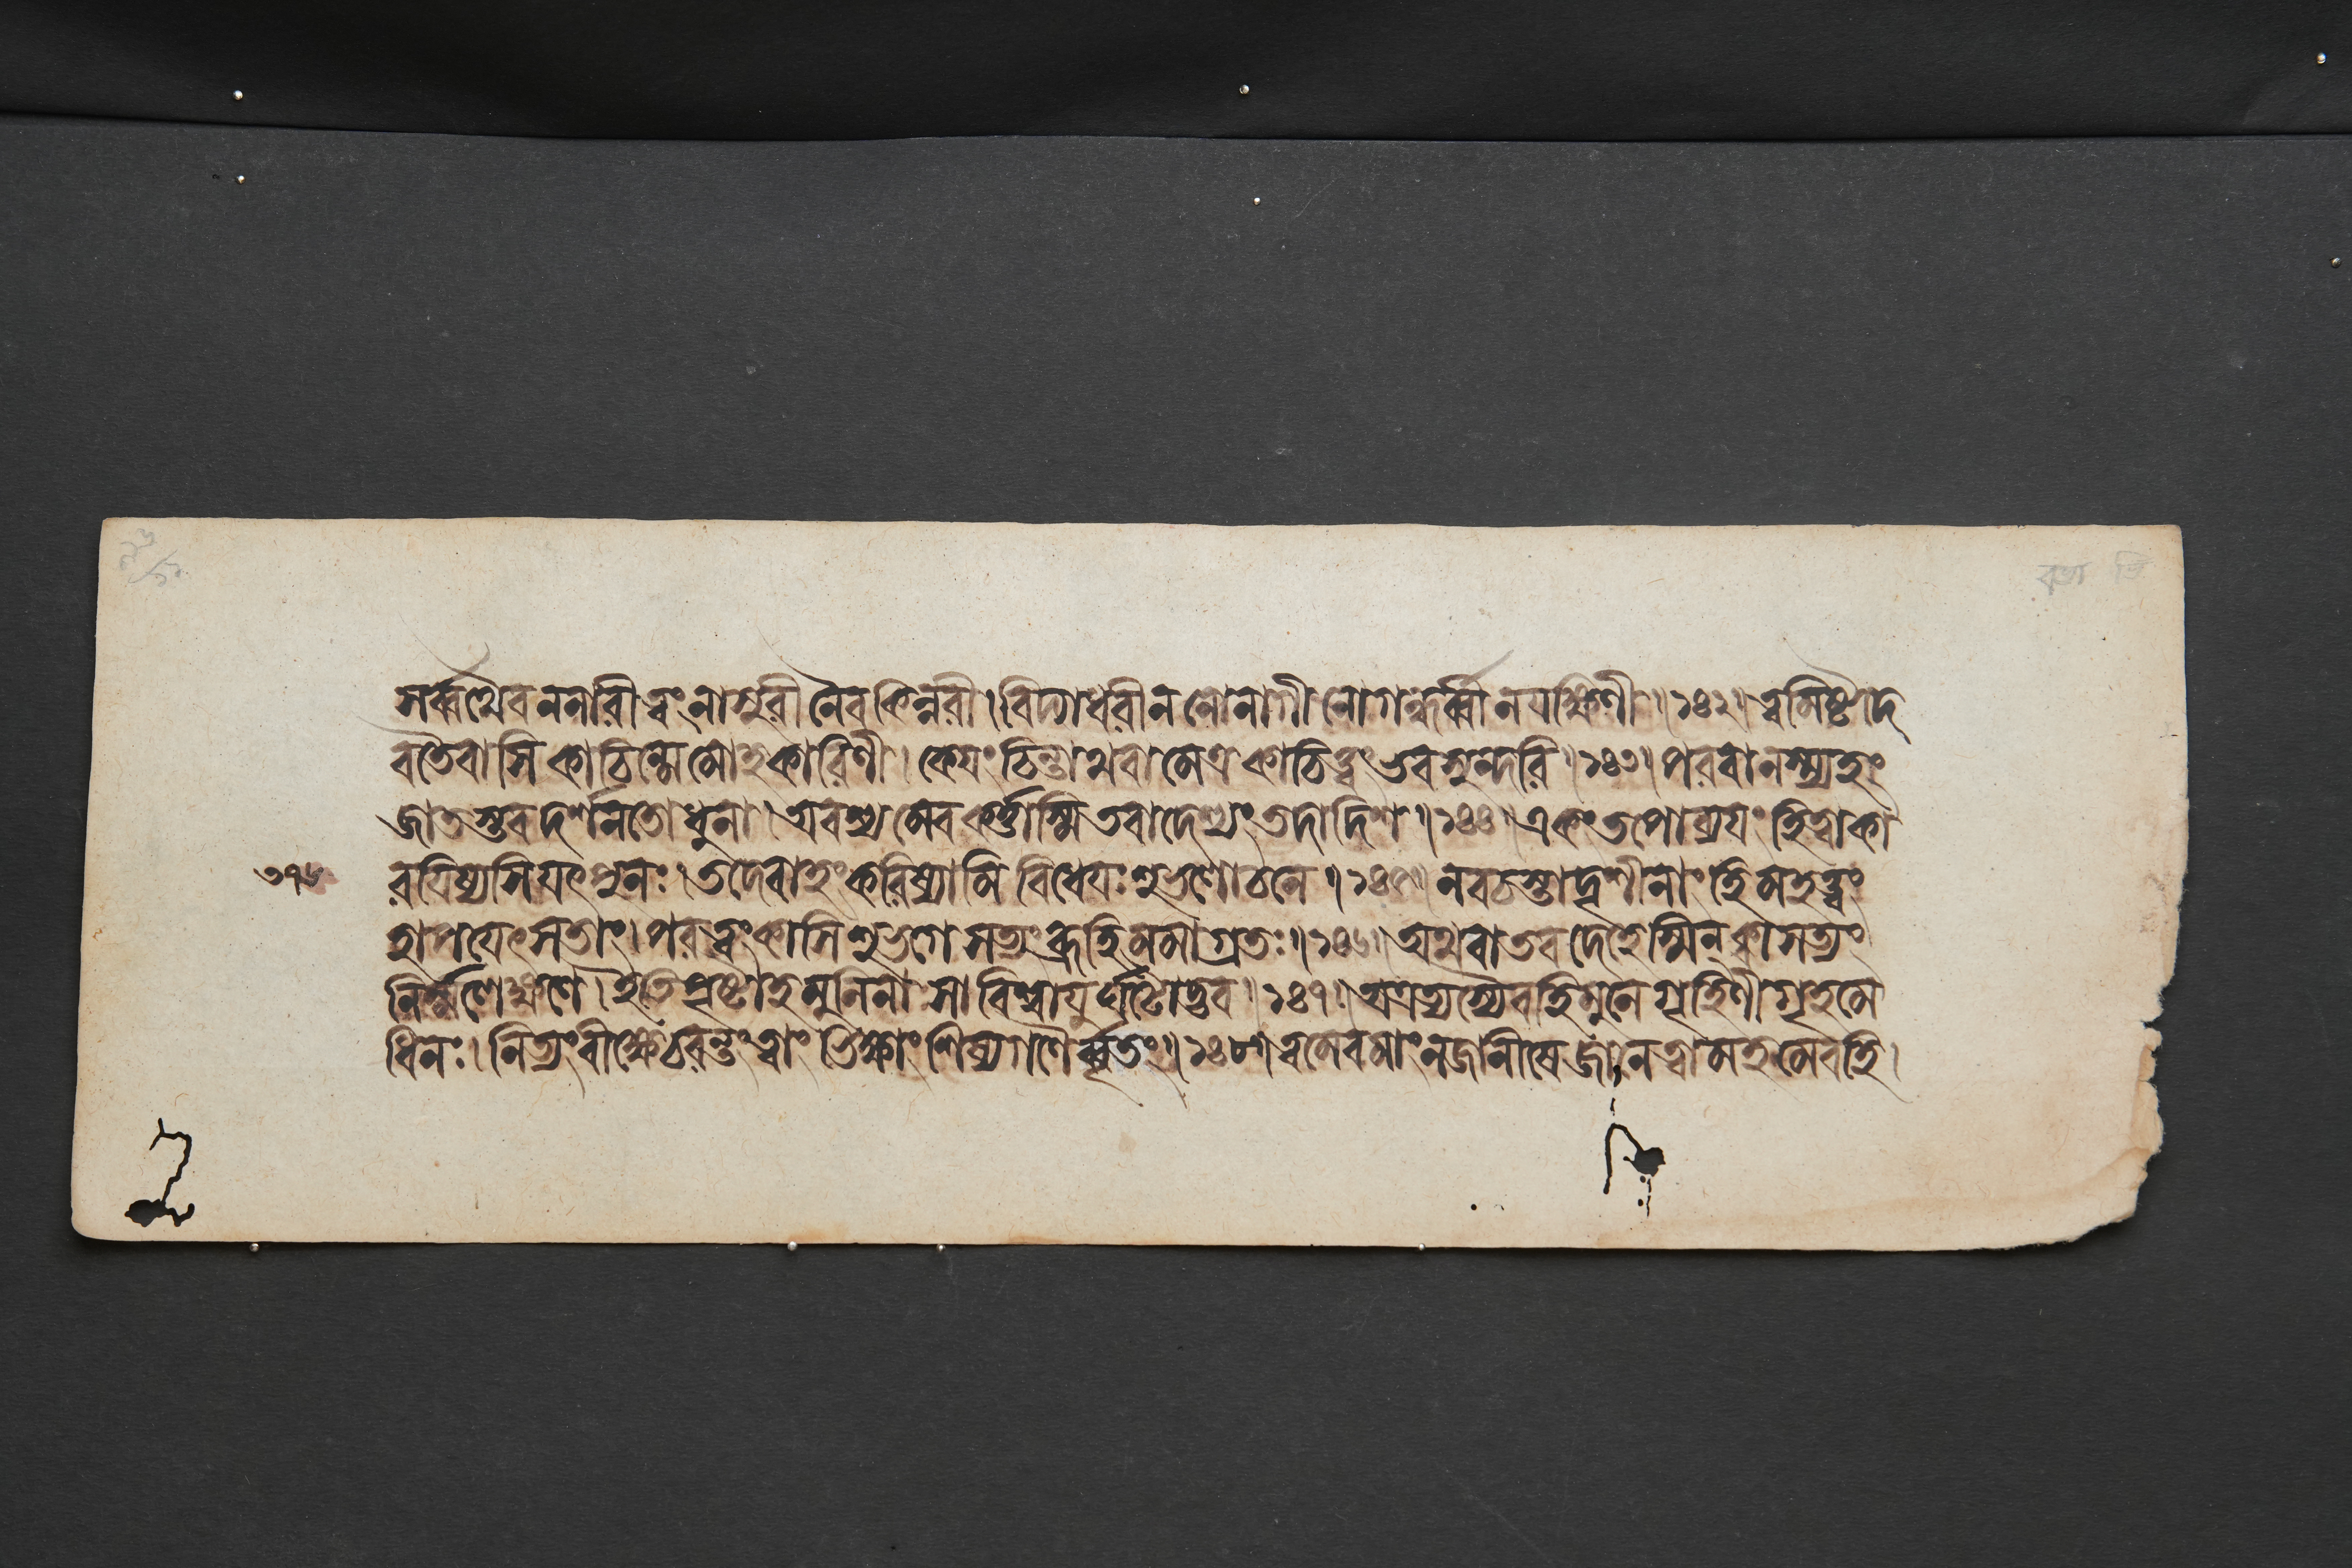 সর্ব্বথৈব ন নারী ত্বং নাসুরী নৈব কিন্নরী । বিদ্যাধরী ন নো নাগী নো গন্ধর্ব্বী ন যক্ষিণী ॥ ১৪২ ॥ ত্বমিষ্টদে
বতৈবাসি কাচিন্মে মোহকারিণী । কেয়ং চিন্তাথবা মেত্র কাচিত্ত্বং ভব সুন্দরি ॥ ১৪৩ ॥ পরবানস্ম্যহং
জাতস্তব দর্শনতোধুনা । অবশ্যমেব কর্ত্তাস্মি তবাদেশ্যং তদাদিশ ॥ ১৪৪ ॥ একং তপোব্যয়ং হিত্বা কা
রয়িষ্যসি যৎ পুনঃ । তদেবাহং করিষ্যামি বিধেয়ঃ শুভলোচনে ॥ ১৪৫ ॥ ন বচস্ত্বাদৃশীনাং হি মহত্ত্বং
হাপয়েৎ সতাং । পরং ত্বং কাসি শুভগে সত্যং ব্রূহি মমাগ্রতঃ ॥ ১৪৬ ॥ অথবা তব দেহেস্মিন্ ক্বাসত্যং
নির্ম্মলেক্ষণে । ইতি পৃষ্টাহ মুনিনা সা বিশ্বায়ুর্ঘটোদ্ভব ॥ ১৪৭ ॥ অত্রত্যস্যৈব হি মুনে গৃহিণী গৃহমে
ধিনঃ । নিত্যং বীক্ষে চরন্তং ত্বাং ভিক্ষাং শিষ্যগণৈর্ব্বৃতং ॥ ১৪৮ ॥ ত্বমেব মাং ন জানীষে জানে ত্বামহমেব হি ।
৩৭৬